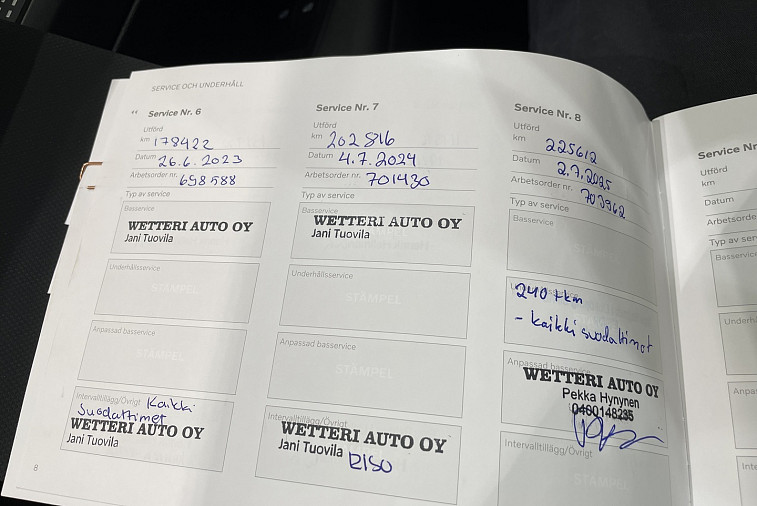 SERVICE OCH UNDERHÅLL
Service Nr. 6
Utförd
km 178422
Datum 26.6.2023
Arbetsorder nr. 698588
Typ av service
Basservice
WETTERI AUTO OY
Jani Tuovila
Underhållsservice
STÄMPEL
Anpassad basservice
STÄMPEL
Intervalltillägg/Övrigt Kaikki
suodattimet
WETTERI AUTO OY
Jani Tuovila
8
Service Nr. 7
Utförd
km 202816
Datum 4.7.2024
Arbetsorder nr. 701430
Typ av service
Basservice
WETTERI AUTO OY
Jani Tuovila
Underhållsservice
STÄMPEL
Anpassad basservice
STÄMPEL
Intervalltillägg/Övrigt
WETTERI AUTO OY
Jani Tuovila
Service Nr. 8
Utförd
km 225612
Datum 2.7.2025
Arbetsorder nr. 703962
Typ av service
Basservice
STÄMPEL
240 tkm
- kaikki suodattimet
Anpassad basservice
WETTERI AUTO OY
Pekka Hynynen
0400148235
Intervalltillägg/Övrigt
STÄMPEL
Service Nr
Utförd
km
Datum
Arbetsorde
Typ av ser
Basservice
Underh
Anpa
Inte